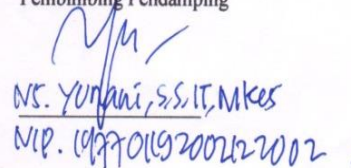 Pembimbing Pendamping
NS. Yuniani, S.S.IT, MKes
NIP. 197701192002122002